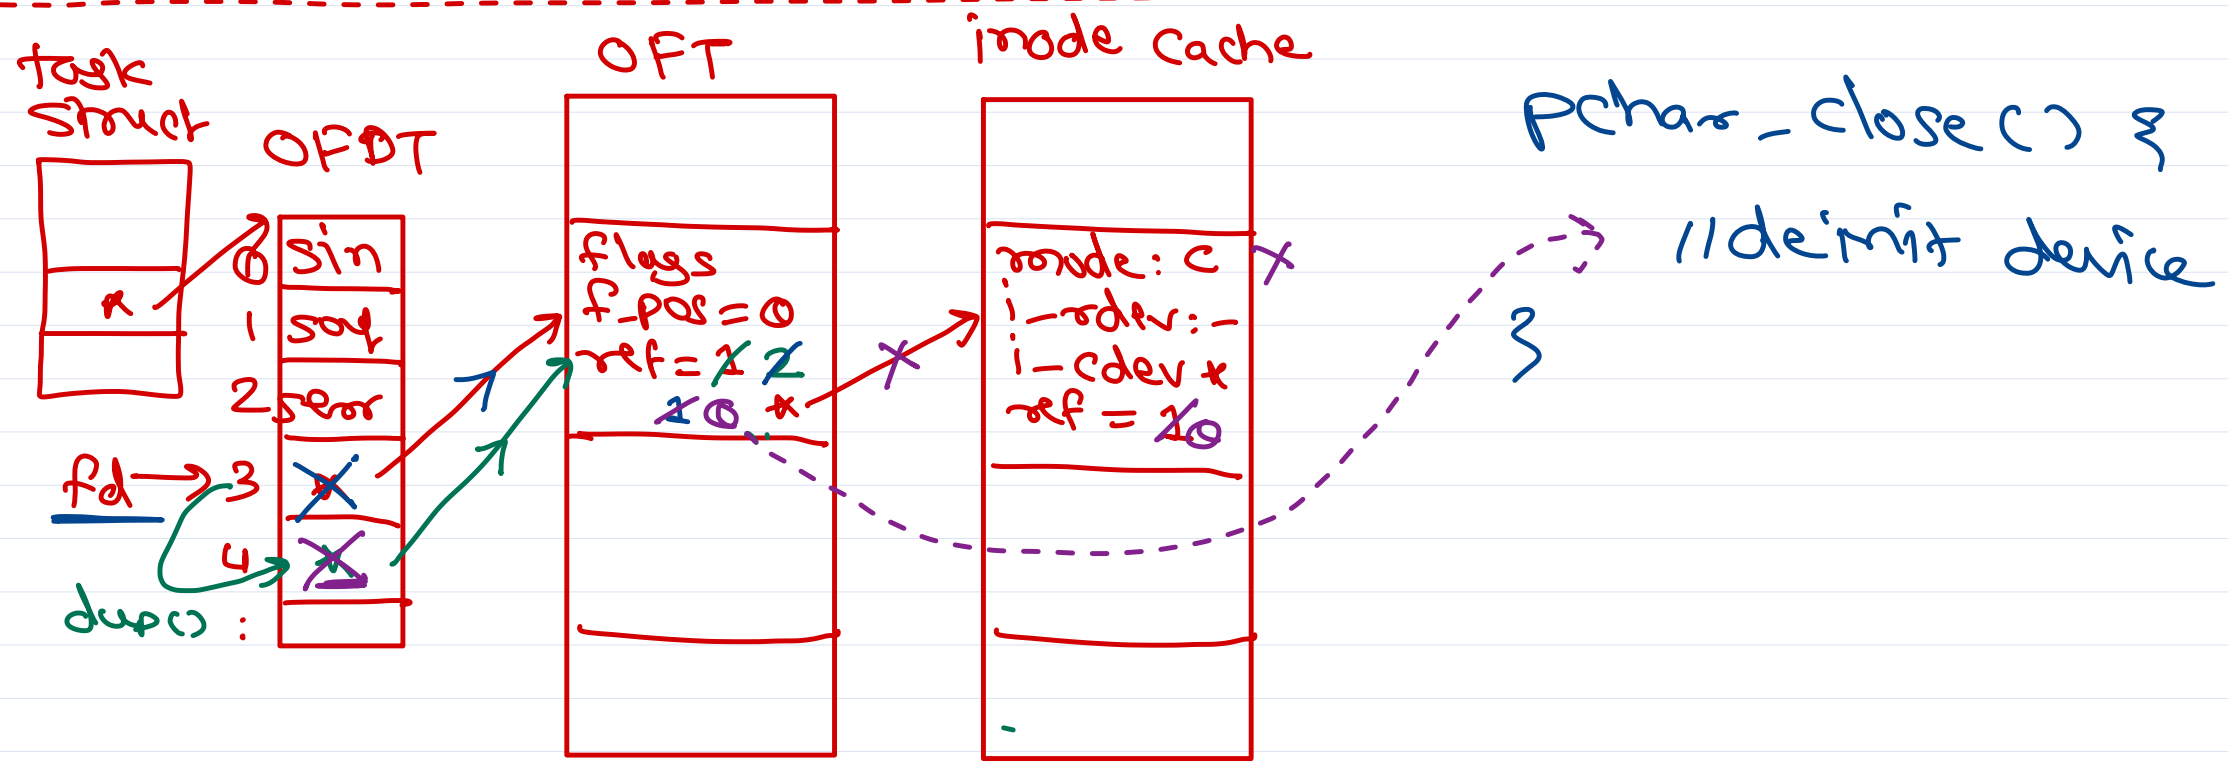 task
struct
OFDT
0 sin
*
1 sout
2 serr
fd 3 *
4 *
dup() :
OFT
flags
f_pos = 0
ref = 1 2
1 0 *
inode cache
mode: c
- rdev: -
- cdev *
ref = 1 0
pchar_close() {
// deinit device
}